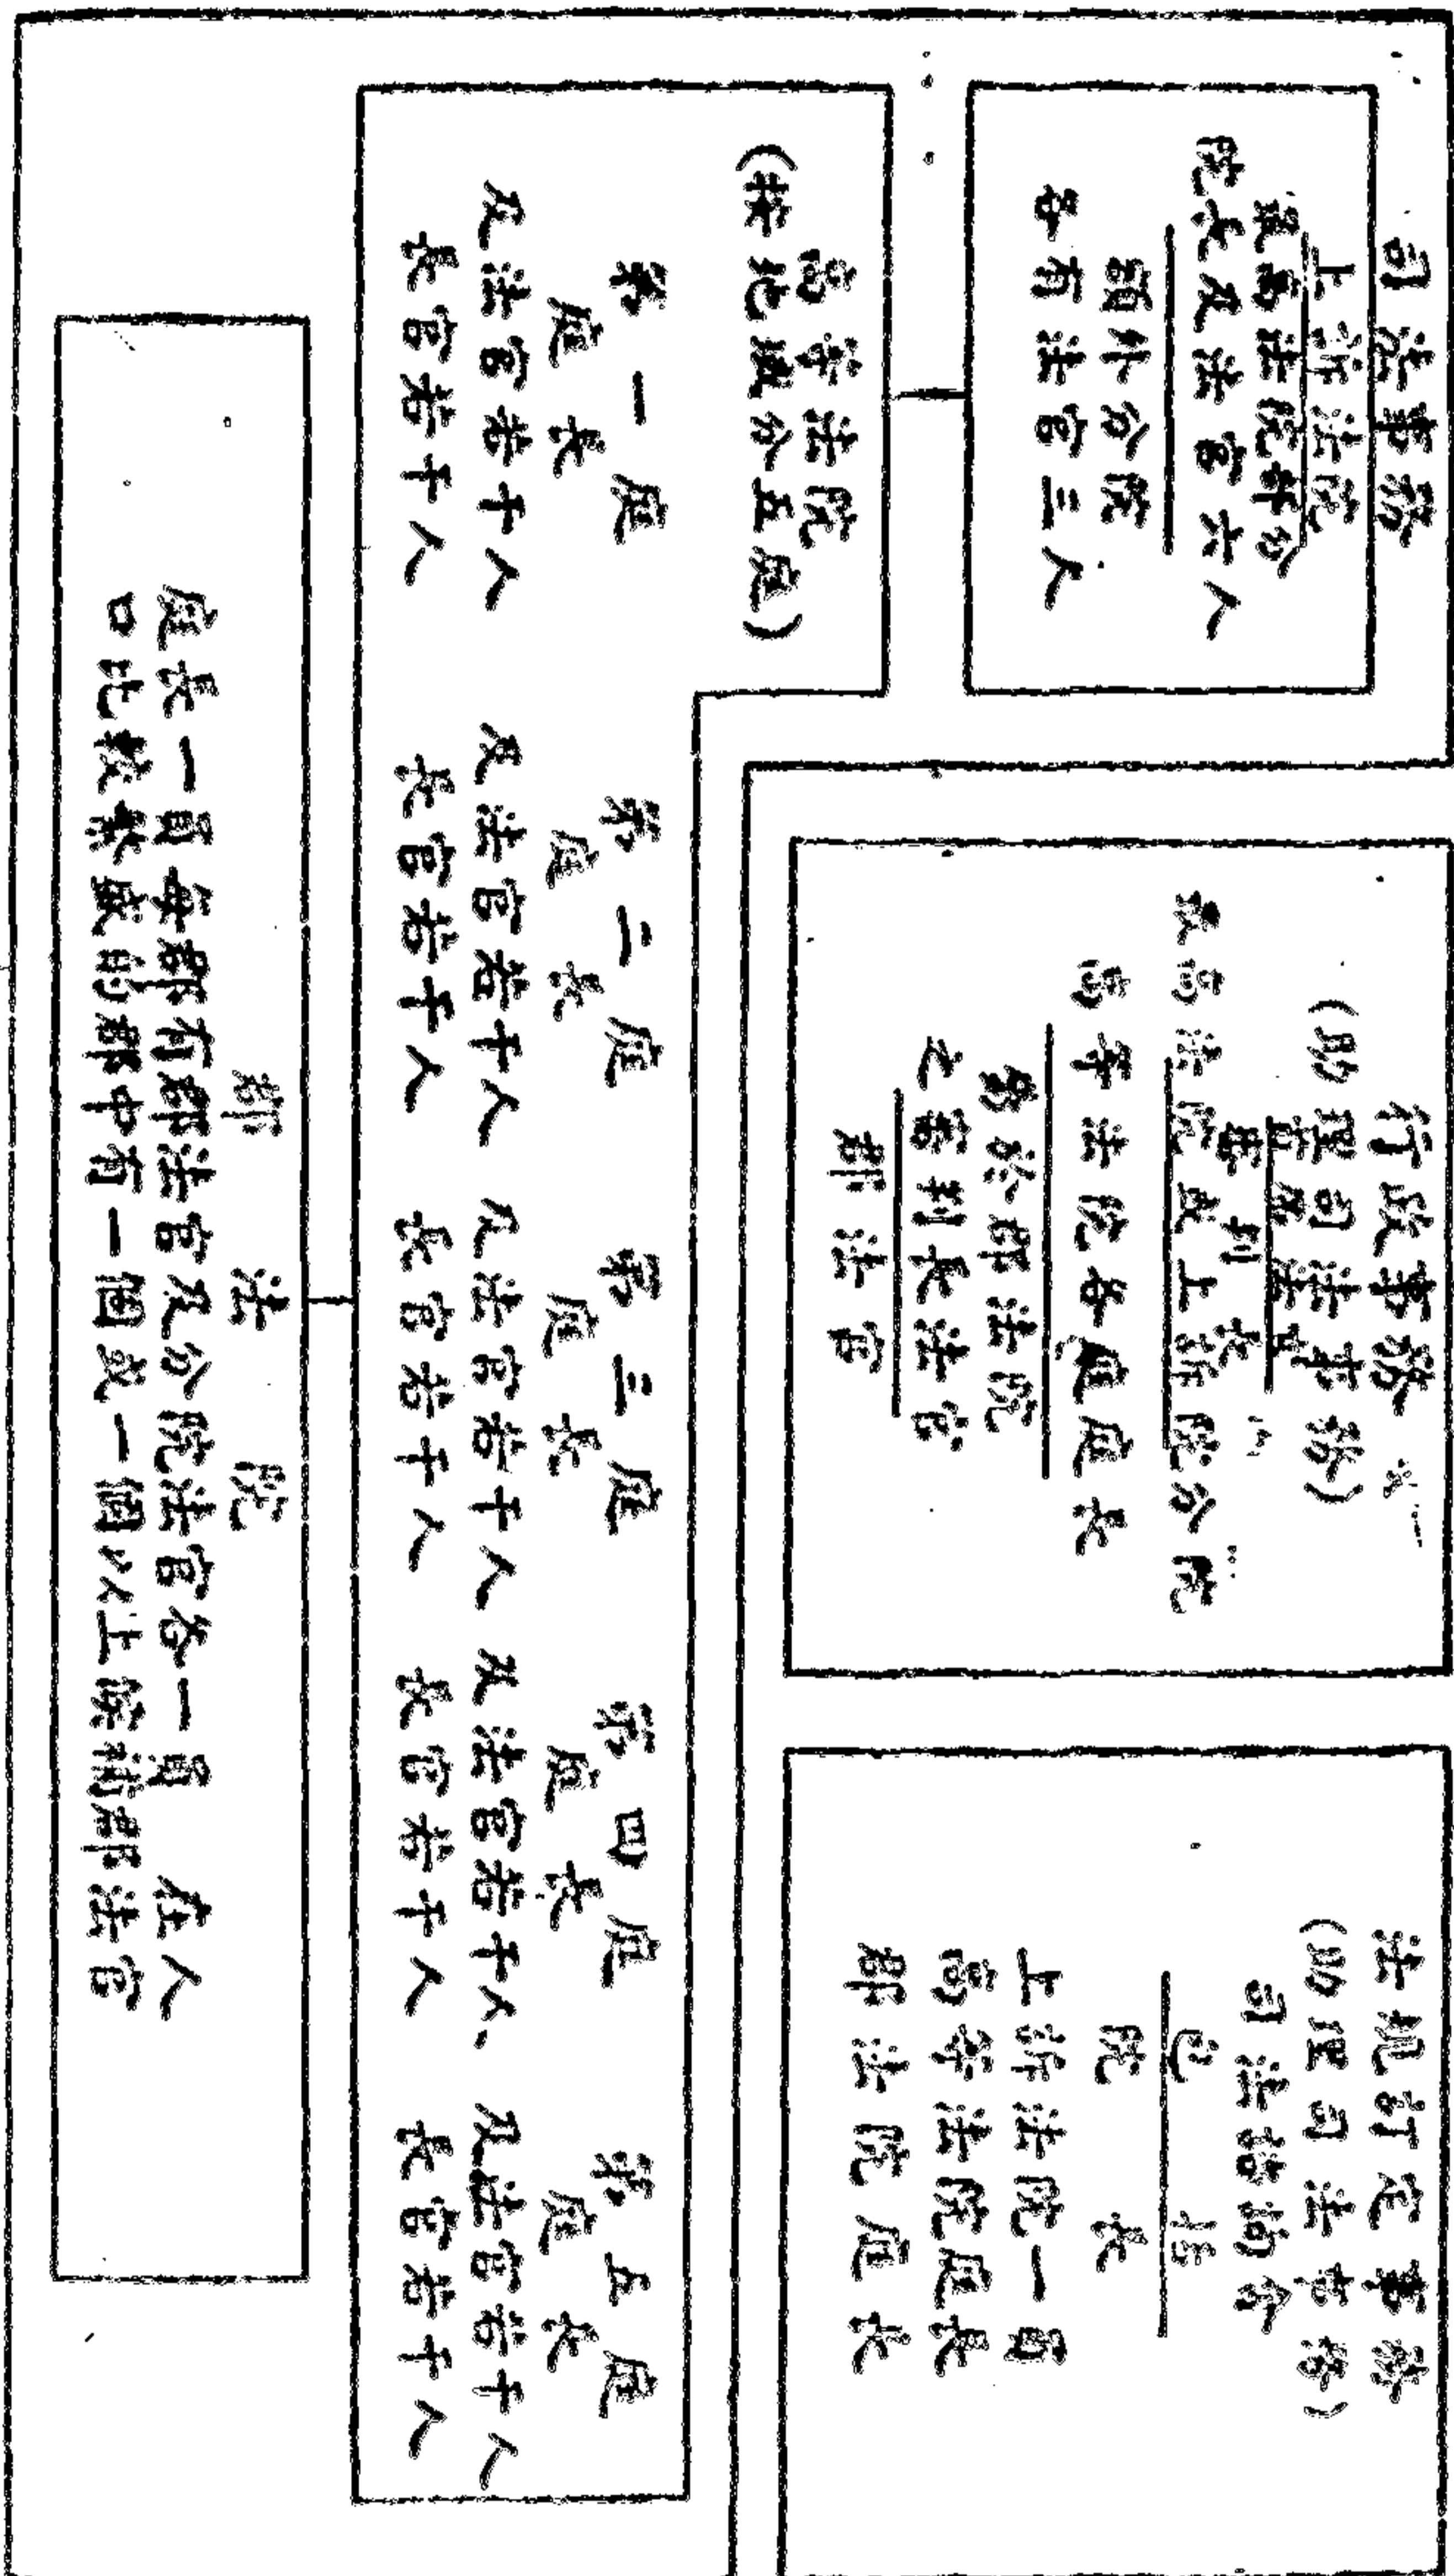 司法事務
上訴法院
最高法院评分
院长及法官六人
額外分院
各有法官三人
高等法院
(按地域分五庭)
第一庭
庭長
及法官若干人
長官若干人
第二庭
庭長
及法官若干人
長官若干人
第三庭
庭長
及法官若干人
長官若干人
第四庭
庭長
及法官若干人、
長官若干人
第五庭
庭長
及法官若干人
長官若干人
郡法院
庭長一員每郡有郡法官及分院法官各一員 在人
口比較繁盛的郡中有一個或一個以上後補郡法官
行政事務
(助理司法事務)
審判長
最高法院及上訴院分院
高等法院各庭庭長
劳於郡法院
之審判長法官
郡法官
法規訂定事務
(助理司法事務)
司法諮詢会
包括
院長
上訴法院一四
高等法院庭長
郡法院庭长